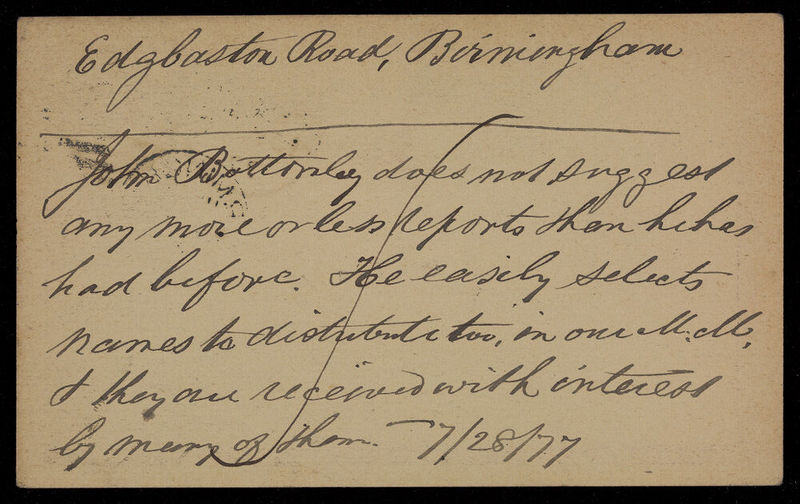 Edgbaston Road, Birmingham
John Bottomley does not suggest
any more or less reports than he has
had before. He easily selects
names to distribute too, in our M. M,
& they are received with interest
by many of them. — 7/28/77